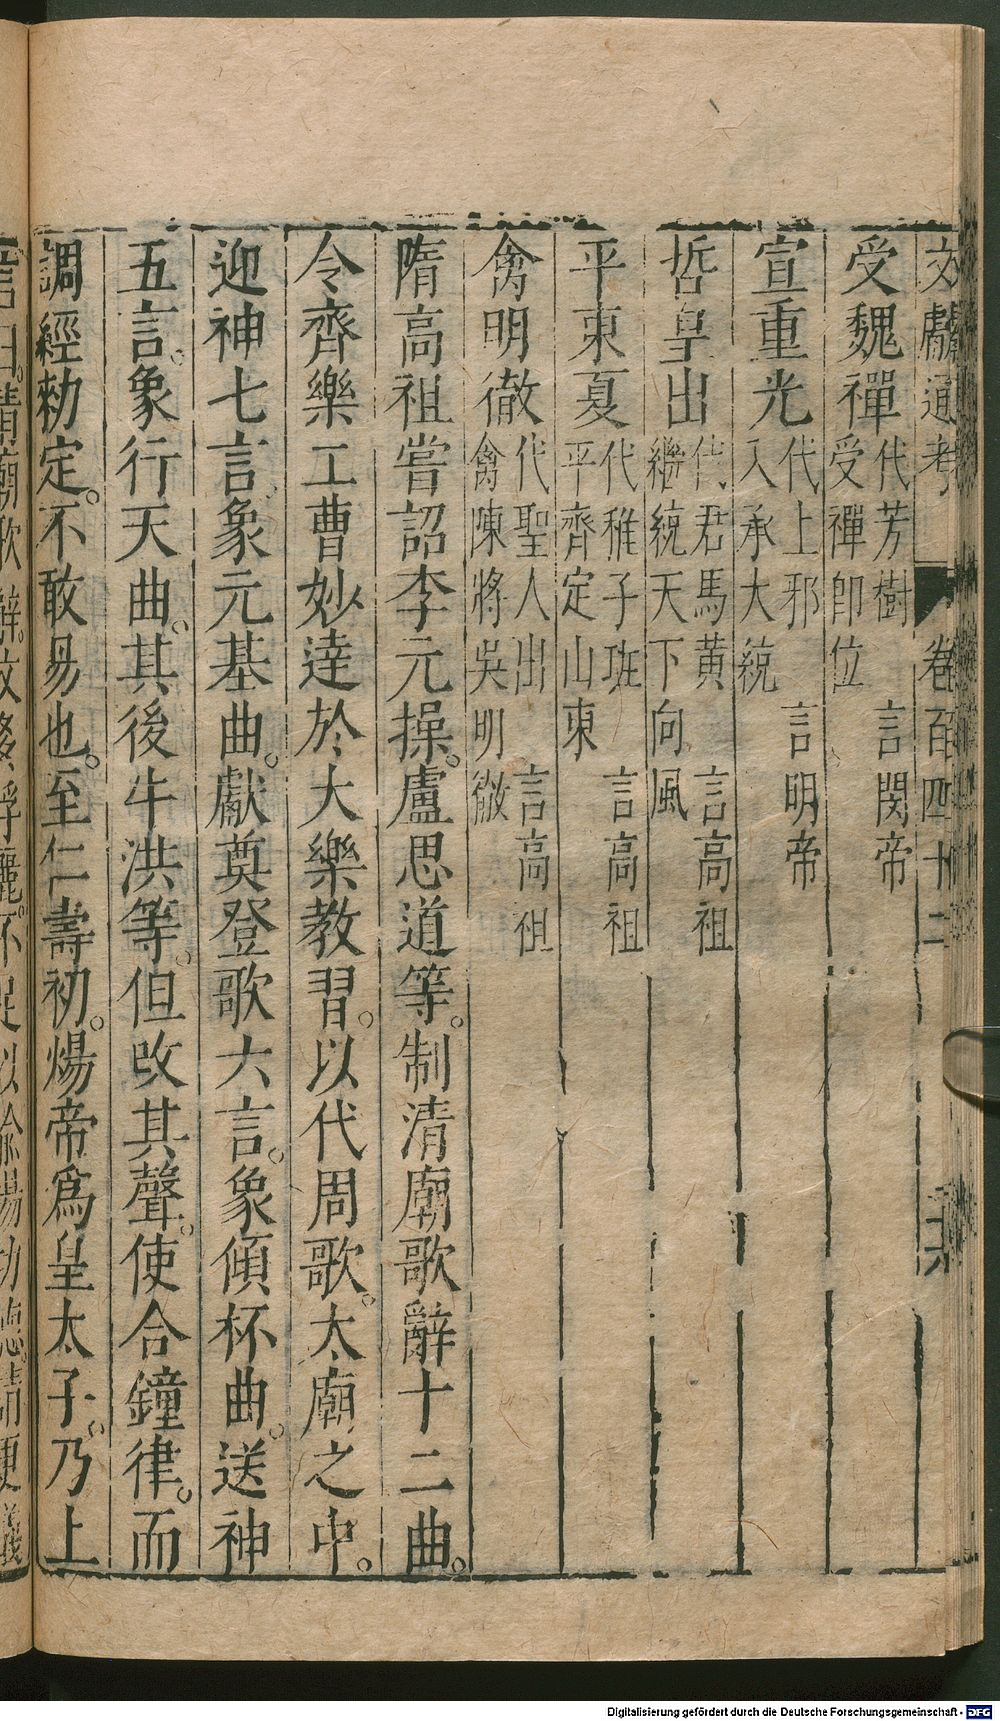 文獻通考 卷百四十二
受魏禪 代芳樹 言閔帝受禪卽位
宣重光 代上邪 言明帝入承大統
哲皇出 代君馬黃 言高祖繼統天下向風
平東夏 代稚子班 言高祖平齊定山東
禽明徹 代聖人出 言高祖禽陳將吳明徹
隋高祖嘗詔李元操。盧思道等。制清廟歌辭十二曲。
令齊樂工曹妙達於大樂教習。以代周歌。太廟之中。
迎神七言。象元基曲。獻奠登歌六言。象傾杯曲。送神
五言。象行天曲。其後牛洪等。但改其聲。使合鐘律。而
調經勅定。不敢易也。至仁壽初。煬帝爲皇太子。乃上
言曰。清廟歌辭。文多浮麗。不足以
Digitalisierung gefördert durch die Deutsche Forschungsgemeinschaft - DFG